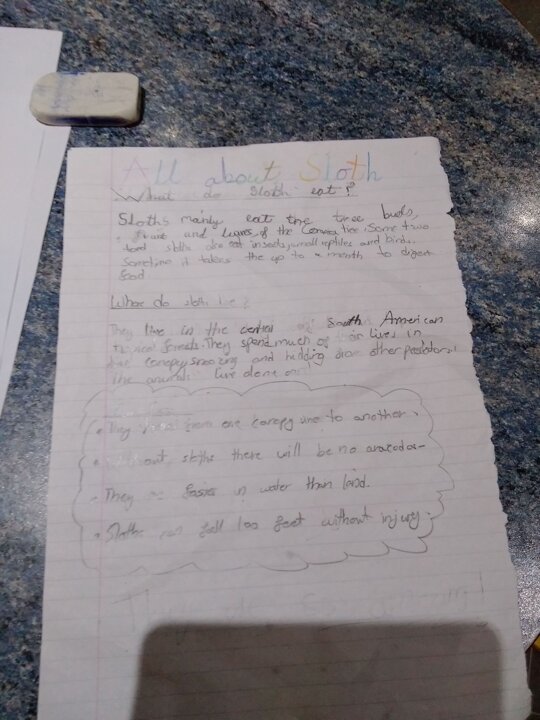 All about Sloth
What do sloth eat?
Sloths mainly eat the tree buds,
fruit and leaves, of the tree. Some two
toed sloths also eat insects, small reptiles and birds.
Sometime it takes the up to a month to digest
food
Where do sloth live?
They live in the central of South American
tropical forests. They spend much of their lives in
the canopy snoozing and hidding from other predators.
The animals live alone
They from one canopy to another.
sloths there will be no avocados
They faster in water than land.
Sloths can fall 100 feet without injury.